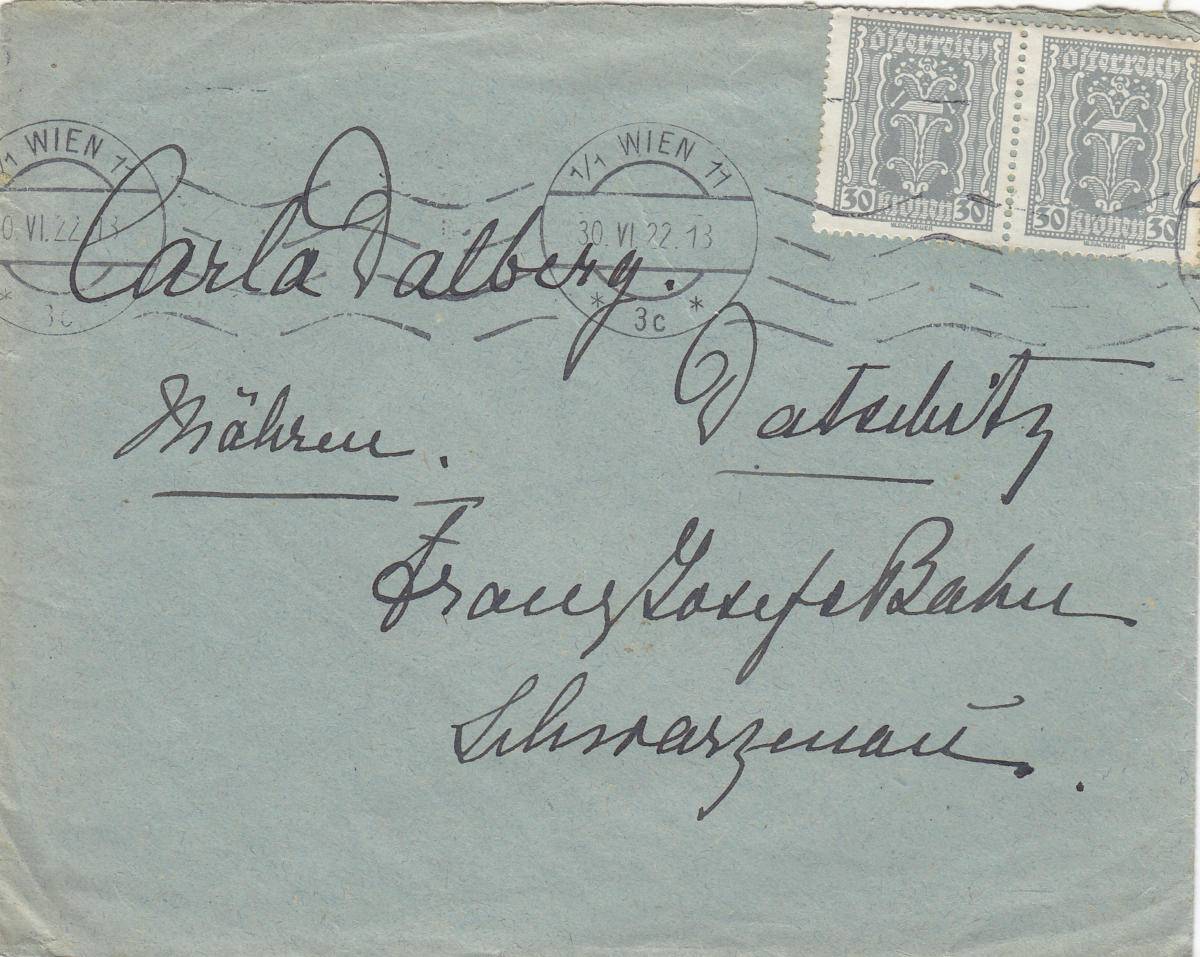 Österreich Österreich
30 Kronen 30 30 Kronen 30
1/1 WIEN 11 1/1 WIEN 11
0. VI. 22. 13 30. VI. 22. 13
* 3c * 3c *
Carla Dalberg.
Datschitz
Mähren.
Franz Josefs Bahn
Schwarzenau.